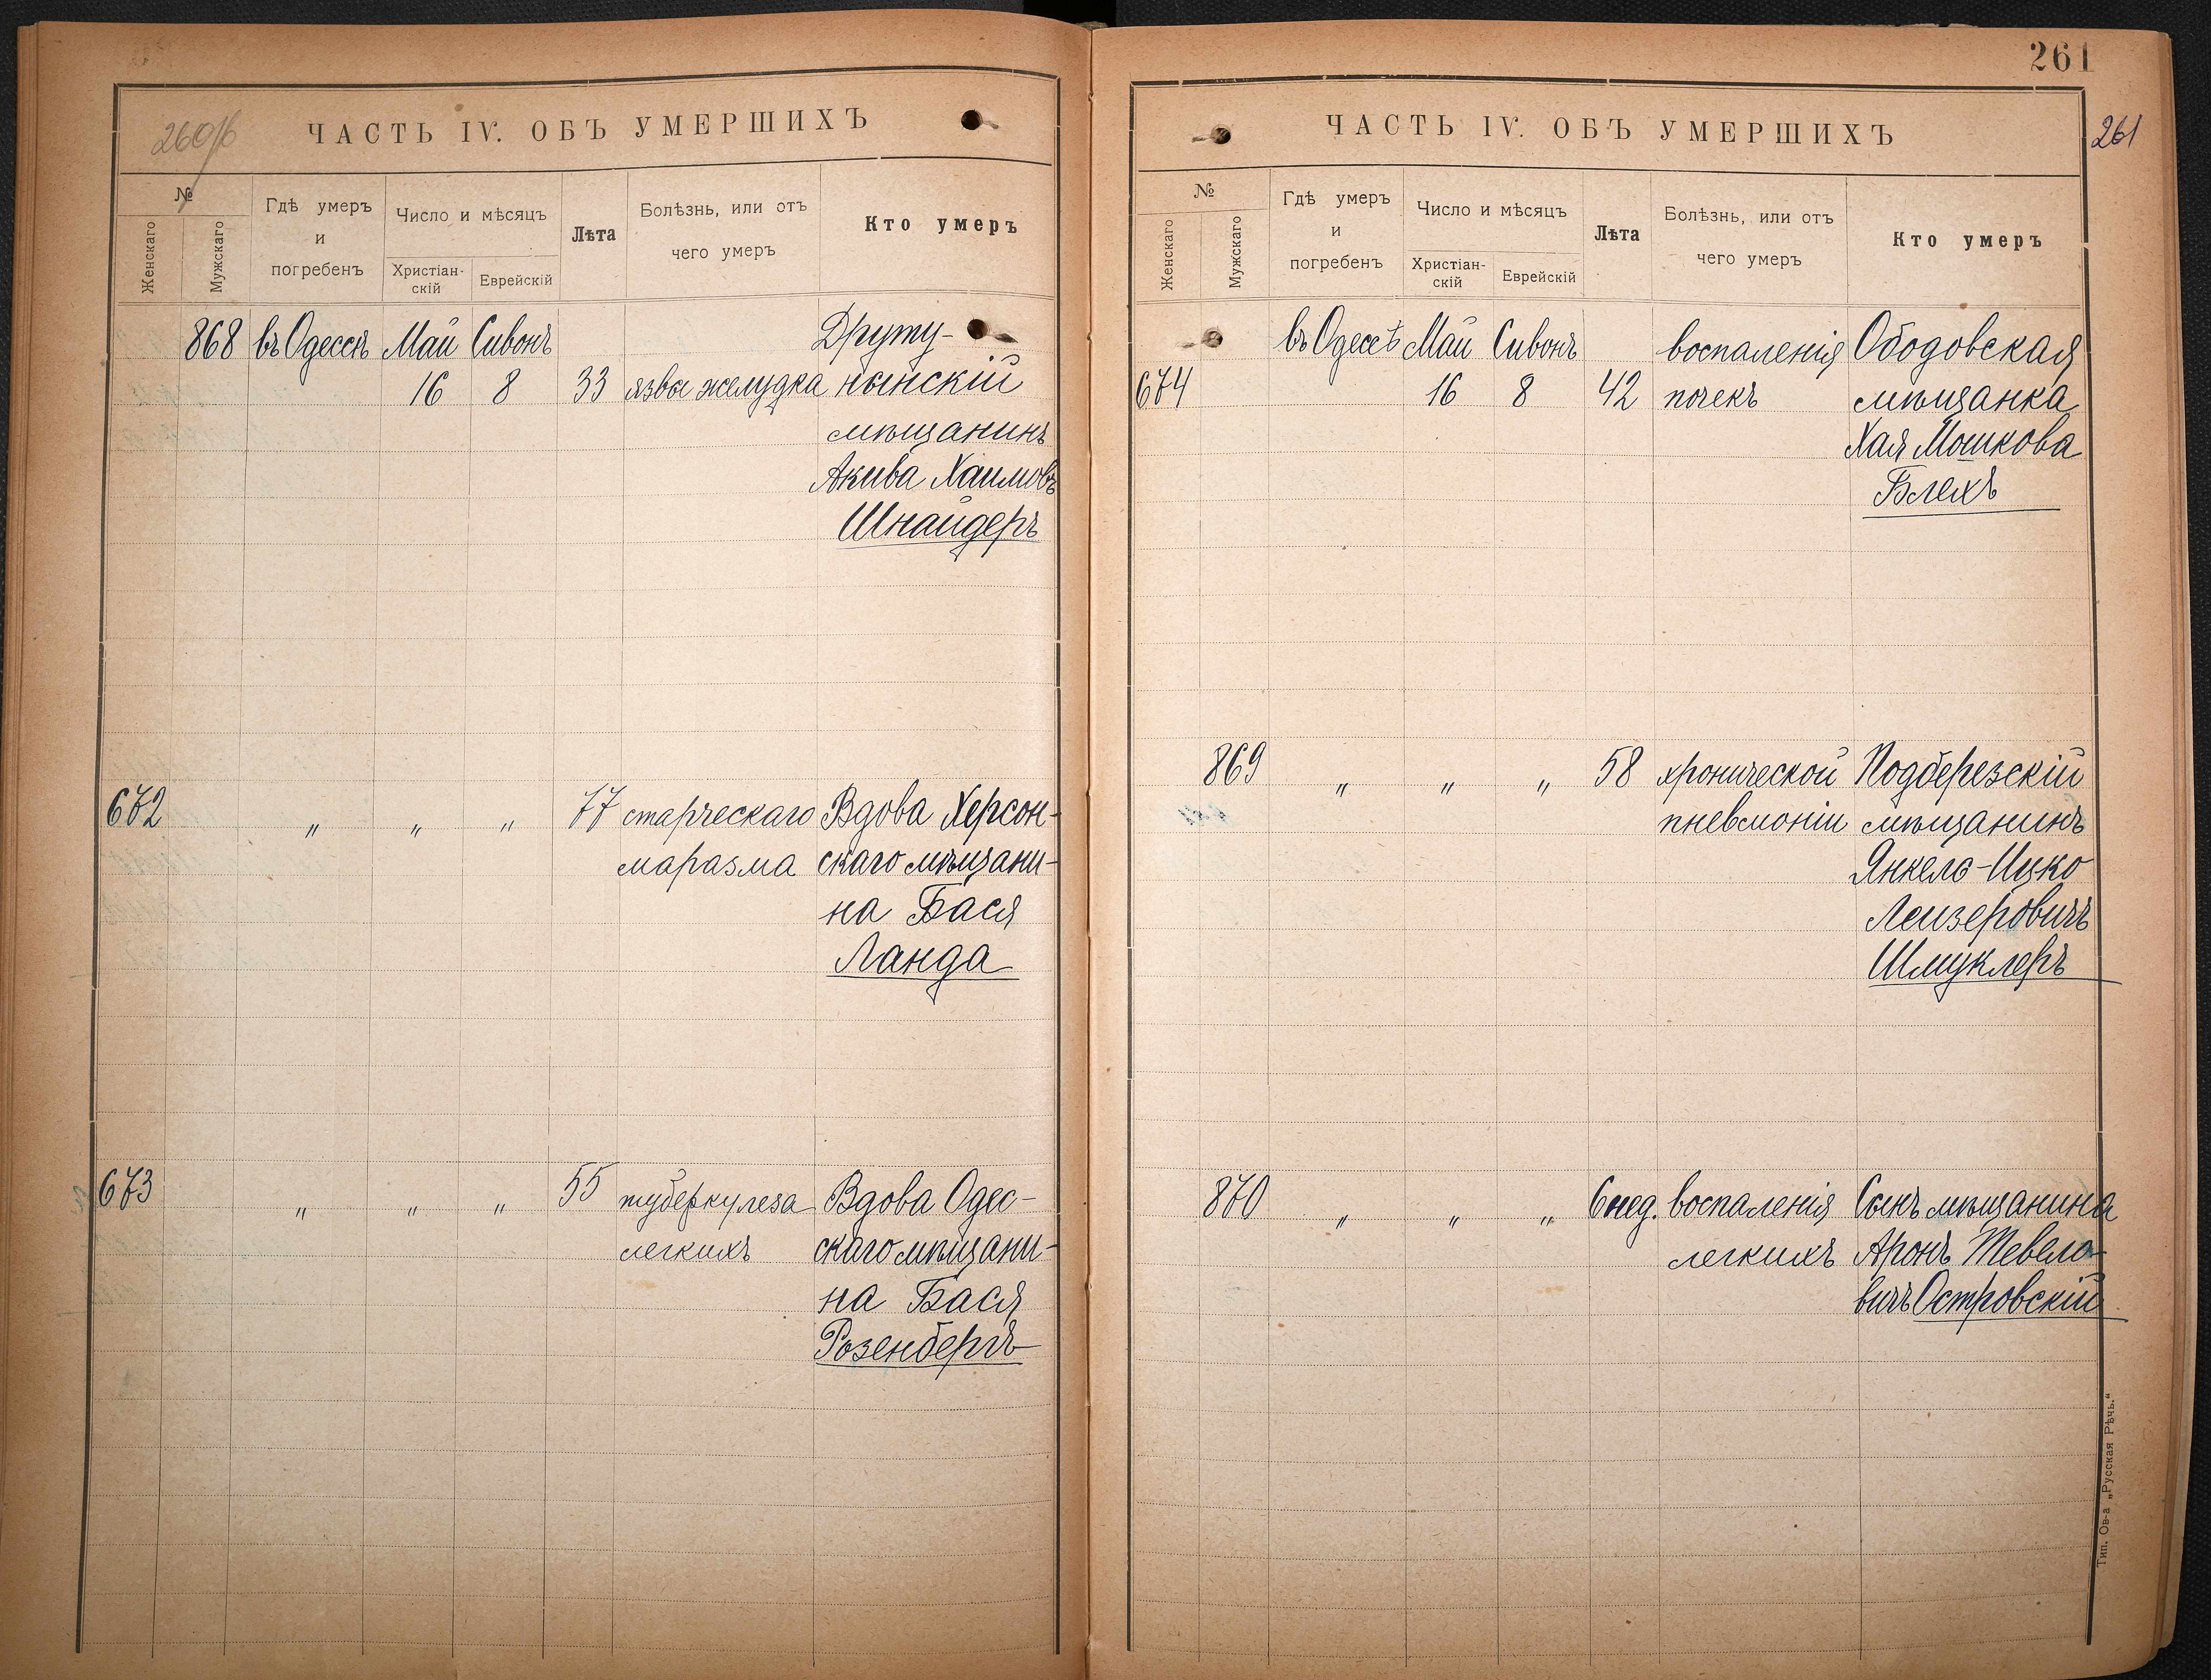 260/б
ЧАСТЬ IV. ОБЪ УМЕРШИХЪ
№
Женскаго
Мужскаго
Гдѣ умеръ
и
погребенъ
Число и мѣсяцъ
Христіан-
скій
Еврейскій
Лѣта
Болѣзнь, или отъ
чего умеръ
Кто умеръ
868 въ Одессѣ Май Сивонъ Друту-
16 8 33 язвы желудка нынскій
мѣщанинъ
Акива Хаимовъ
Шнайдеръ
672 „ „ „ 77 старческаго Вдова Херсон-
маразма скаго мѣщани-
на Бася
Ланда
673 „ „ „ 55 туберкулеза Вдова Одес-
легкихъ скаго мѣщани-
на Бася
Розенбергъ
261
261
ЧАСТЬ IV. ОБЪ УМЕРШИХЪ
№
Женскаго
Мужскаго
Гдѣ умеръ
и
погребенъ
Число и мѣсяцъ
Христіан-
скій
Еврейскій
Лѣта
Болѣзнь, или отъ
чего умеръ
Кто умеръ
въ Одессѣ Май Сивонъ воспаленія Ободовская
674 16 8 42 почекъ мѣщанка
Хая Мошкова
Блехъ
869 „ „ „ 58 хронической Подберезскій
пневмоніи мѣщанинъ
Янкель-Ицко
Лейзеровичъ
Шмуклеръ
870 „ „ „ 6 нед. воспаленія Сынъ мѣщанина
легкихъ Аронъ Тевело-
вичъ Островскій
Тип. Ов-а „Русская Рѣчь.“